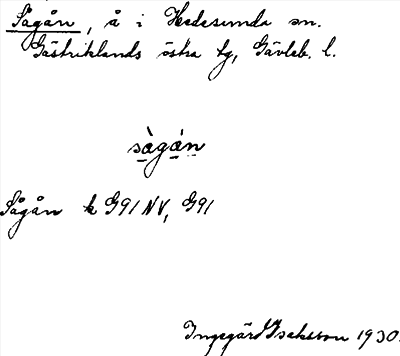 Sågån, å i Hedesunda sn.
Gästriklands östra tg, Gävleb. l.
sågån
Sågån k G91 NV, G91
Ingegärd Isaksson 1930.